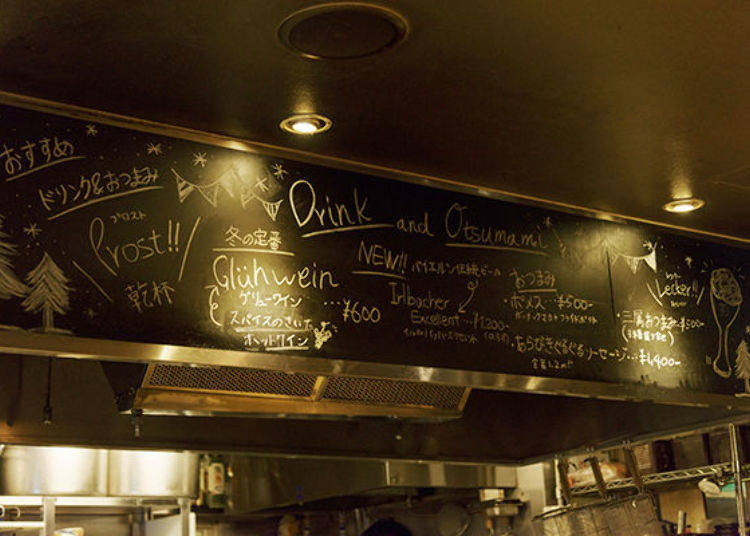 おすすめ
ドリンク&おつまみ
プロスト
Prost!!
乾杯
Drink and Otsumami
冬の定番
Glühwein
グリューワイン …¥600
スパイスのきいた
ホットワイン
NEW!! バイエルン伝統ビール
Irlbacher
Excellent …¥1,200-
おつまみ
・ポメス…¥500-
ガーリックマヨ
フライドポテト
あらびきぐるぐるソーセージ…¥1,400-
全長1.2m!!
Lecker!!
三属おつまみ…¥500-